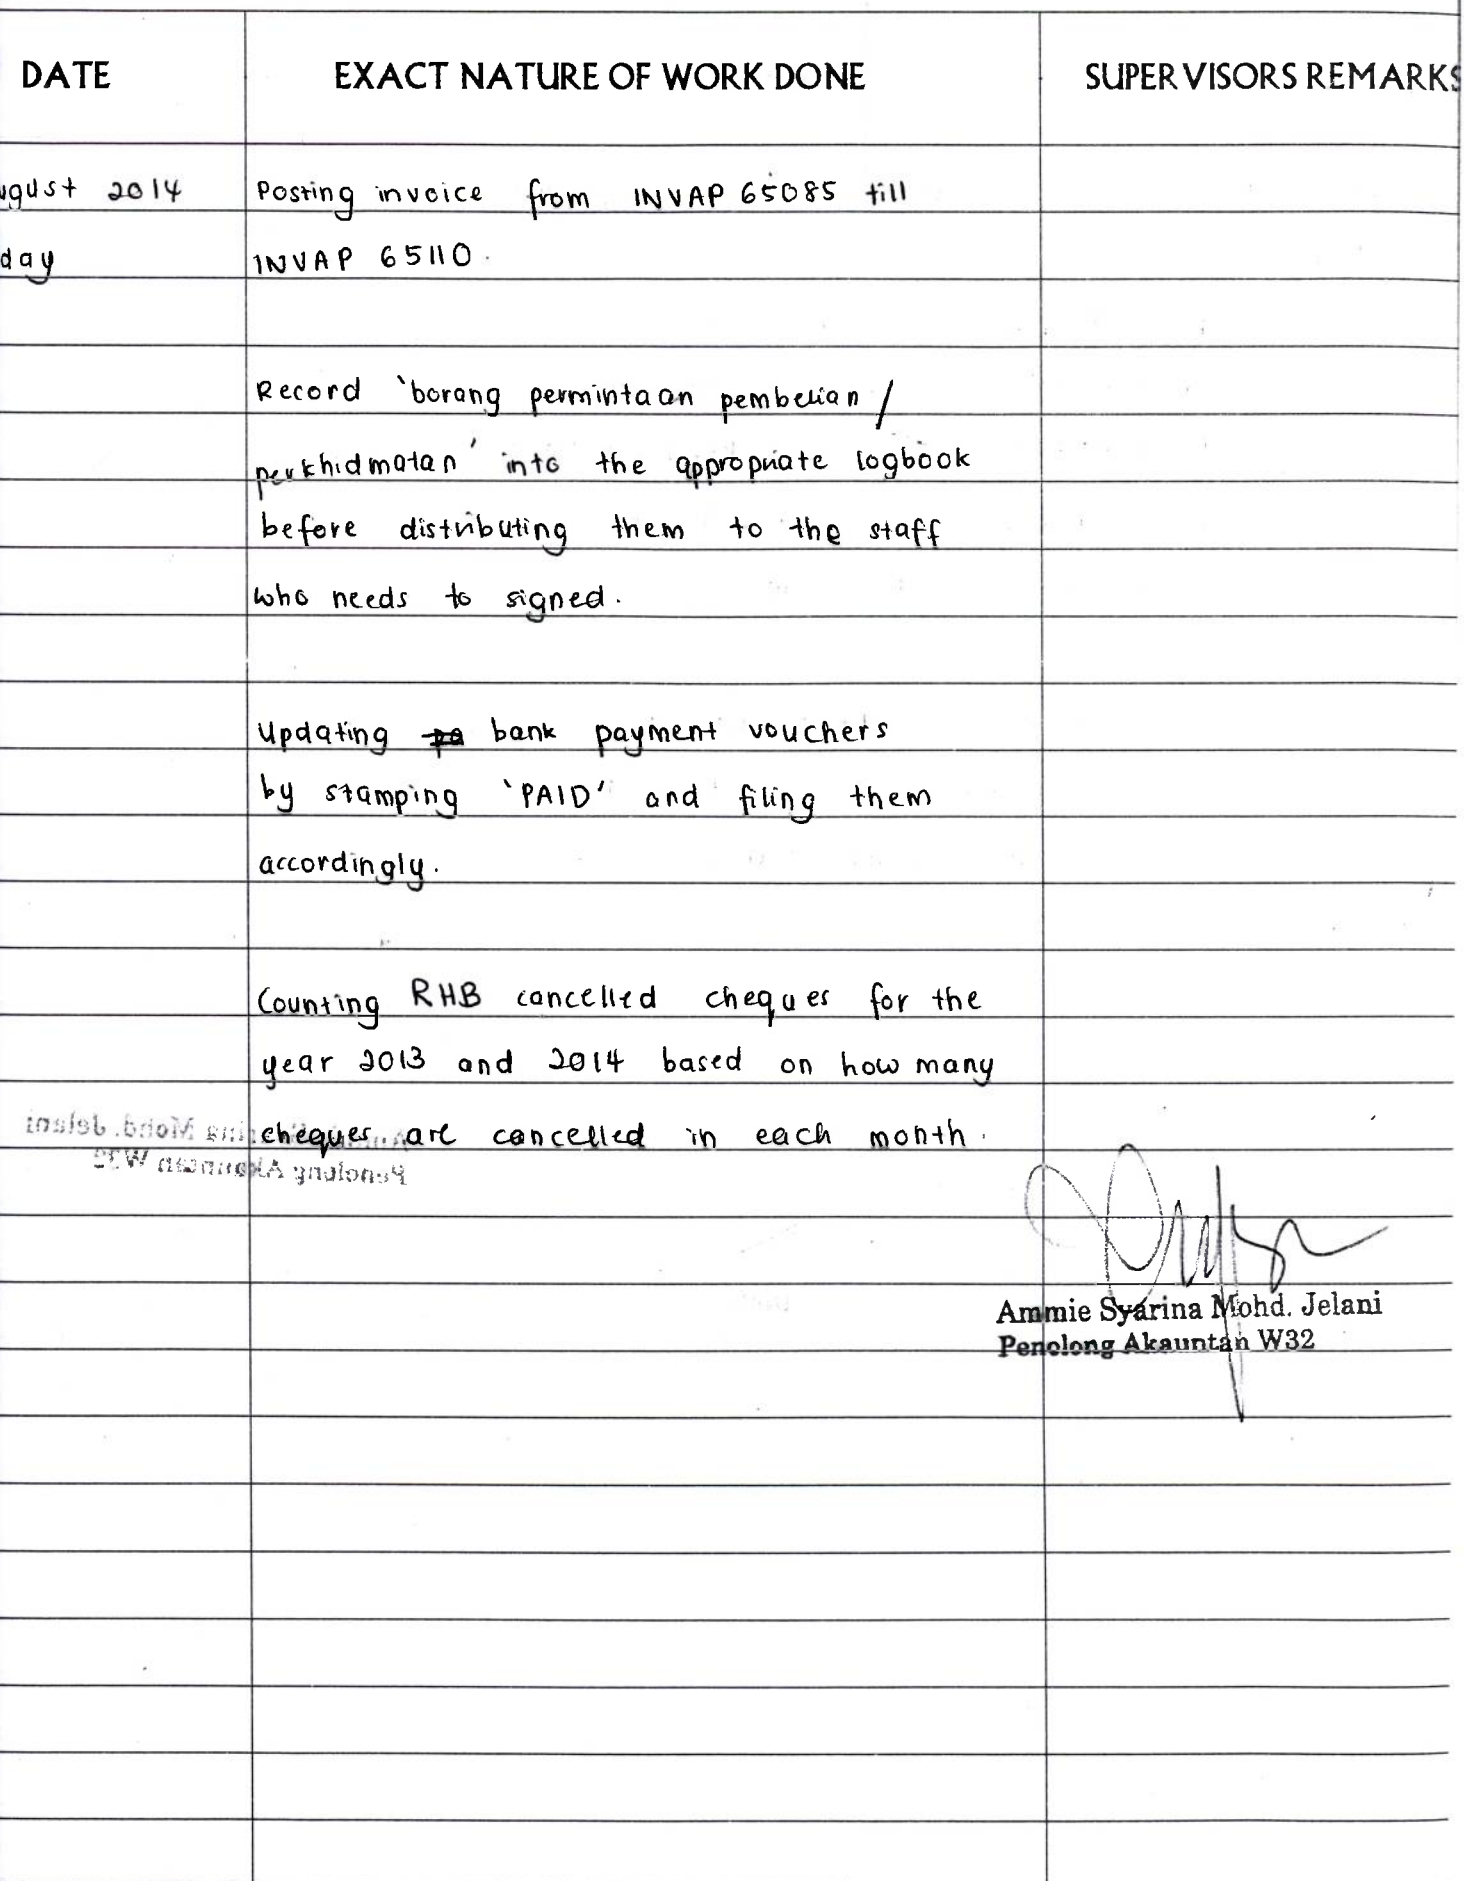 DATE EXACT NATURE OF WORK DONE SUPERVISORS REMARKS
ugust 2014 Posting invoice from INVAP 65085 till
day INVAP 65110.
Record 'borang permintaan pembelian /
perkhidmatan' into the appropriate logbook
before distributing them to the staff
who needs to signed.
Updating pa bank payment vouchers
by stamping 'PAID' and filing them
accordingly.
Counting RHB cancelled cheques for the
year 2013 and 2014 based on how many
cheques are cancelled in each month.
Ammie Syarina Mohd. Jelani
Penolong Akauntan W32